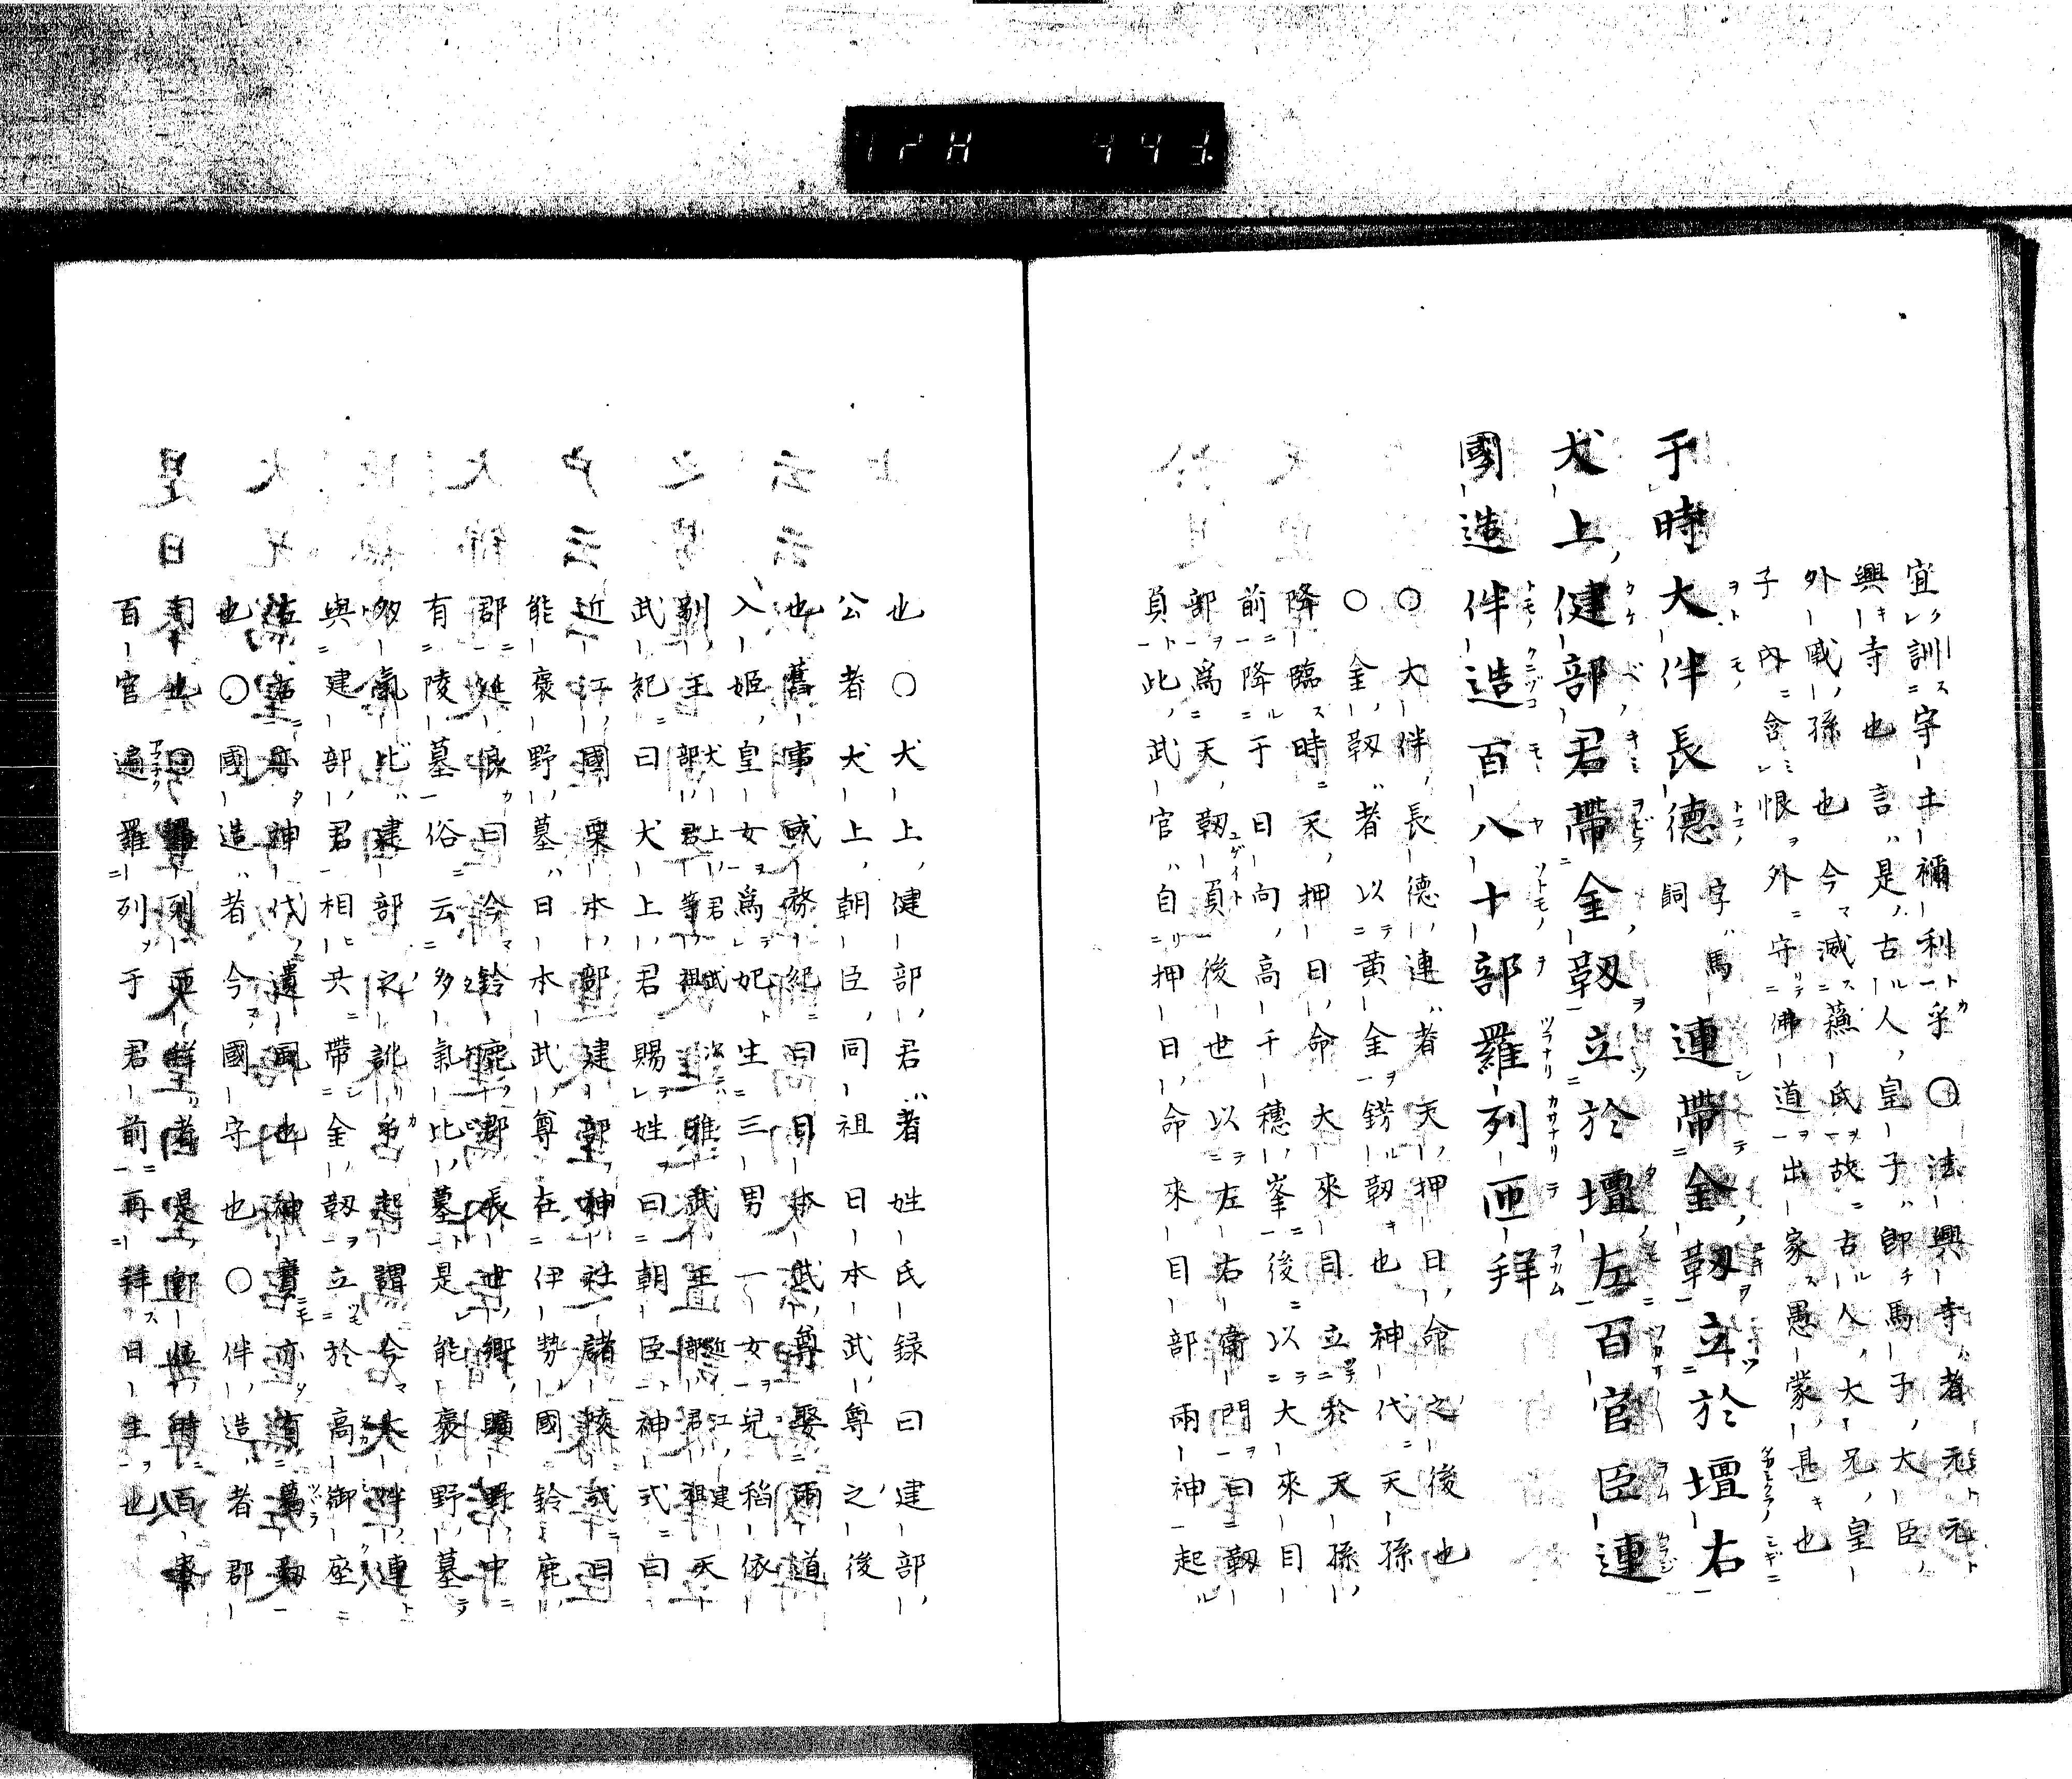 宜訓守土禰利乎 ○法興寺者元元
興寺也言是古人皇子即馬子大臣
外戚孫也今滅蘓氏故古人大兄皇
子内含恨外守佛道出家愚蒙甚也
于時大伴長德字馬飼連帶金靱立於壇右
犬上健部君帶金靱立於壇左百官臣連
國造伴造百八十部羅列匝拜
○大伴長德連者天押日命之後也
○金靱者以黄金鎊靱也神代天孫
降臨時天押日命大來目立於天孫
前降于日向高千穗峯後以大來目
部爲天靱負後世以左右衛門曰靱
負此武官自押日命來目部兩神起
也○犬上健部君者姓氏録曰建部
公者犬上朝臣同祖日本武尊之後
也舊事或務紀曰日本武尊娶兩道
入姫皇女爲妃生三男一女兒稻依
別王犬上君武部君等祖次稚武王近江建部君祖天
武紀曰犬上君賜姓曰朝臣神式曰
近江國栗本郡建部神社諸陵式曰
能褒野墓日本武尊在伊勢國鈴鹿
郡延浪曰今鈴鹿郡長世郷曠野中
有陵墓俗云多氣比墓是能褒野墓
多氣比建部之訛乎起謂今大伴連
與建部君相共帶金靱立於高御座
左右亦神代遺風也神寶亦有萬靱
也○國造者今國守也○伴造者郡
司也○羅列匝拜者是卽位時百
百官遍羅列于君前再拜日主也